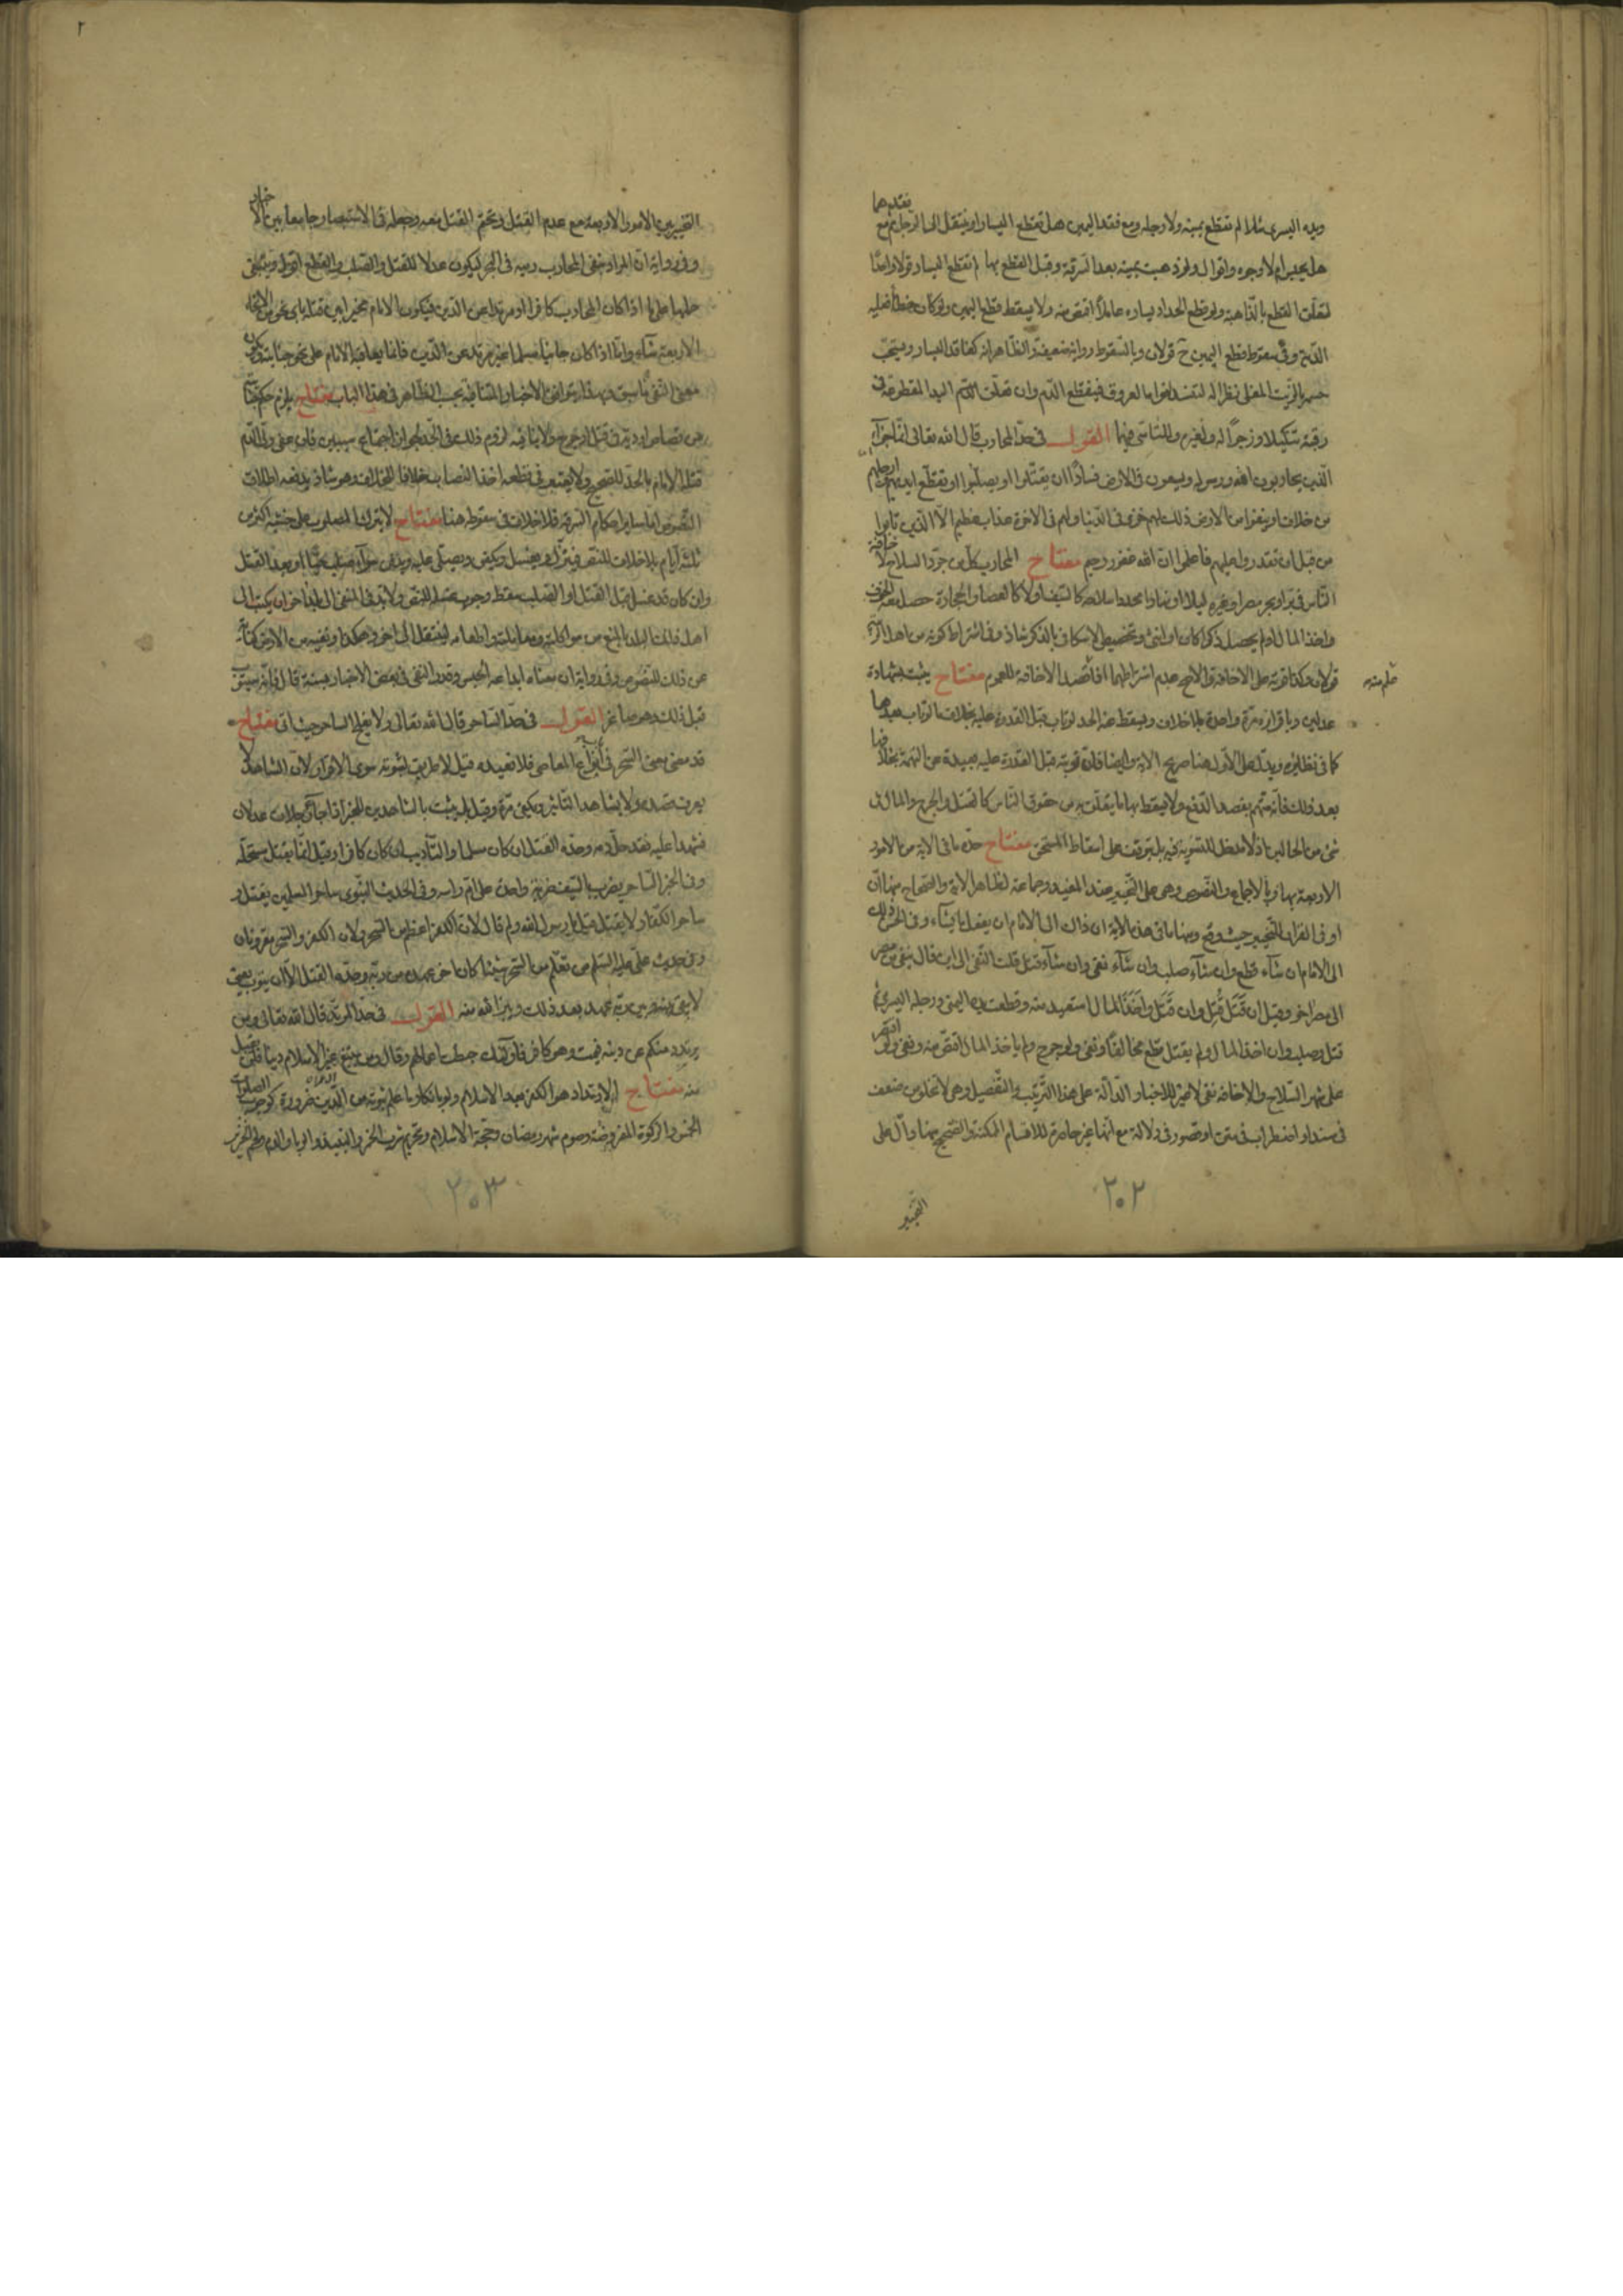 ويده اليسرى شلا لم تقطع يمينه ولا رجله ومع فقد اليمين هل تقطع اليسار او ينتقل الى الرجل ثم مع فقدهما
هل يحبس ام لا وجوه واقوال ولو ذهبت يمينه بعد السرقة وقبل القطع بها لم تقطع اليسار قولا واحدا
لتعلق القطع بالذاهبة ولو قطع الحداد يساره عامدا اقتص منه ولا يسقط قطع اليمين ولو كان خطأ فعليه
الدية وفي سقوط قطع اليمين ح قولان وبالسقوط رواية ضعيفة والظاهر انه كفاقد اليسار ويستحب
حسمه بالزيت المغلى نظرا له لتنسد افواه العروق فينقطع الدم وان تعلق اليد المقطوعة في
رقبته تنكيلا وزجرا له ولغيره وللتاسي فيها القول في حد المحارب قال الله تعالى انما جزاء
الذين يحاربون الله ورسوله ويسعون في الارض فسادا ان يقتلوا او يصلبوا او تقطع ايديهم وارجلهم
من خلاف او ينفوا من الارض ذلك لهم خزى في الدنيا ولهم في الاخرة عذاب عظيم الا الذين تابوا
من قبل ان تقدروا عليهم فاعلموا ان الله غفور رحيم مفتاح المحارب كل من جرد السلاح لاخافة
الناس في بر او بحر مصر او غيره ليلا او نهارا كالسيف او لا كالعصا والحجارة حصل معه الخوف
واخذ المال ام لم يحصل ذكرا كان او انثى وتخصيص الاسكافي بالذكر شاذ وفي اشتراط كونه من اهل الريبة
قولان وكذا قوته على الاخافة والاصح عدم اشتراطهما اذا قصد الاخافة للعموم مفتاح يثبت بشهادة
عدلين وباقراره مرة واحدة بلا خلاف ويسقط عنه الحد لو تاب قبل القدرة عليه بخلاف ما لو تاب بعدها
كما في نظائره ويدل على الاول هنا صريح الاية وايضا فان توبته قبل القدرة عليه بعيدة عن التهمة بخلافها
بعد ذلك فانه متهم بقصد الدفع ولا يسقط بها ما يتعلق به من حقوق الناس كالقتل والجرح والمال في
شئ من الحالين اذ لا مدخل للتوبة فيه بل يتوقف على اسقاط المستحق مفتاح حده ما في الاية من الامور
الاربعة بها وبالاجماع والنصوص وهي على التخيير عند المفيد وجماعة لظاهر الاية والصحاح منها ان
او في القران للتخيير حيث وقع ومنها ما في هذه الاية ان ذاك الى الامام ان يفعل ما شاء وفي الحسن ذلك
الى الامام ان شاء قطع وان شاء صلب وان شاء نفى وان شاء قتل قلت النفى الى اين قال ينفى من مصر
الى مصر اخر وقيل ان قتل قُتِل وان قتل واخذ المال استعيد منه وقطعت يده اليمنى ورجله اليسرى ثم
قتل وصلب وان اخذ المال ولم يقتل قطع مخالفا ونفى ولو جرح ولم ياخذ المال اقتص منه ونفى ولو اقتصر
على شهر السلاح والاخافة نفى لا غير للاخبار الدالة على هذا الترتيب والتفصيل وهي لا تخلو من ضعف
في سند او اضطراب في متن او قصور في دلالة مع انها غير حاصرة للاقسام الممكنة والصحيح منها دال على
التخيير
٢٠٢
٢
التخيير بين الامور الاربعة مع عدم القتل وتحتم القتل معه وجعله في الاستبصار جامعا بين الاخبار
وفي رواية ان المراد بنفى المحارب رميه في البحر ليكون عدلا للقتل والصلب والقطع اقول وينبغى
حملها على ما اذا كان المحارب كافرا او مرتدا عن الدين فيكون الامام مخيرا بين قتله باى نحو من الانحاء
الاربعة شاء واما اذا كان جانيا مسلما غير مرتد عن الدين فانما يعاقبه الامام على نحو جنايته ويكون
معنى النفى ما سبق وبهذا يتوافق الاخبار المتنافية بحسب الظاهر في هذا الباب مفتاح يلزم حكم جنايته
من قصاص او دية في قتل او جرح ولا ينافيه لزوم ذلك في الحد لجواز اجتماع سببين فان عفى ولى الدم
قتله الامام بالحد للصحيح ولا يعتبر في قطعه اخذ النصاب خلافا للخلاف وهو شاذ يدفعه اطلاق
النصوص اما ساير احكام السرقة فلا خلاف في سقوطه هنا مفتاح لا يترك المصلوب على خشبة اكثر من
ثلثة ايام بلا خلاف للنص فينزل ويغسل ويكفن ويصلى عليه ويدفن سواء صلب حيا او بعد القتل
وان كان قد غسل قبل القتل او الصلب سقط وجوب غسله للنص ولا بد في المنفى الى بلد اخر ان يكتب الى
اهل ذلك البلد بالمنع من مواكلته ومعاملته واطعامه لينتقل الى اخر وهكذا ونفيه من الارض كناية
عن ذلك للنصوص وفي رواية ان معناه ايداعه الحبس وقدر النفى في بعض الاخبار بسنة قال فانه سيتوب
قبل ذلك وهو صاغر القول في حد الساحر قال الله تعالى ولا يفلح الساحر حيث اتى مفتاح
قد مضى معنى السحر في ابواب المعاصى فلا نعيده قيل لا طريق لثبوته سوى الاقرار لان الشاهد لا
يعرف قصده ولا يشاهد التاثير ويكفى مرة وقيل بل يثبت بالشاهدين للخبر اذا جاء رجلان عدلان
فشهدا عليه فقد حل دمه وحده القتل ان كان مسلما والتاديب ان كان كافرا وقيل انما يقتل مستحله
وفي الخبر الساحر يضرب بالسيف ضربة واحدة على ام راسه وفي الحديث النبوى ساحر المسلمين يقتل و
ساحر الكفار لا يقتل قيل يا رسول الله ولم قال لان الكفر اعظم من السحر ولان الكفر والسحر مقرونان
وفي حديث على عليه السلم من تعلم من السحر شيئا كان اخر عهده من ربه وحده القتل الا ان يتوب يعنى
لا يبقى بينه وبين ربه عهد بعد ذلك ويبرا الله منه القول في حد المرتد قال الله تعالى ومن
يرتدد منكم عن دينه فيمت وهو كافر فاولئك حبطت اعمالهم وقال ومن يبتغ غير الاسلام دينا فلن يقبل
منه مفتاح الارتداد هو الكفر بعد الاسلام ولو بانكار ما علم ثبوته من الدين ضرورة كوجوب الصلوات
الخمس والزكوة المفروضة وصوم شهر رمضان وحجة الاسلام وتحريم شرب الخمر والنبيذ والربا والدم ولحم الخنزير
٢٠٣